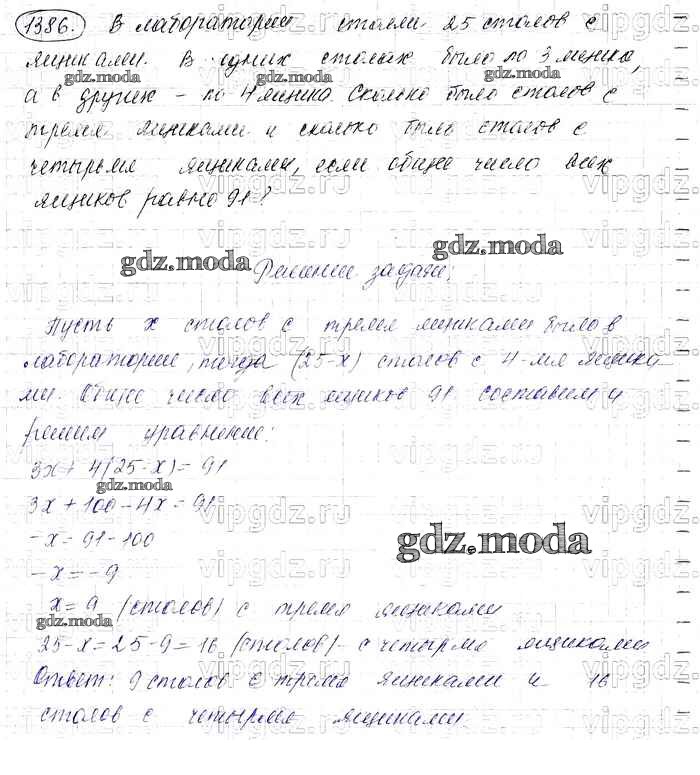 1386. В лаборатории стояли 25 столов с
ящиками. В одних столах было по 3 ящика,
gdz.moda gdz.moda gdz.moda
а в других - по 4 ящика. Сколько было столов с
тремя ящиками и сколько было столов с
четырьмя ящиками, если общее число всех
ящиков равно 91?
gdz.moda
gdz.moda
Решение задачи:
Пусть x столов с тремя ящиками было в
лаборатории, тогда (25-x) столов с 4-мя ящика-
ми. Общее число всех ящиков 91 составим и
решим уравнение:
3x + 4(25-x) = 91
gdz.moda
3x + 100 - 4x = 91
-x = 91-100
gdz.moda
-x = -9
x = 9 (столов) с тремя ящиками
gdz.moda
25-x = 25-9 = 16 (столов) - с четырмя ящиками
Ответ: 9 столов с тремя ящиками и 16
столов с четырмя ящиками.
vipgdz.ru